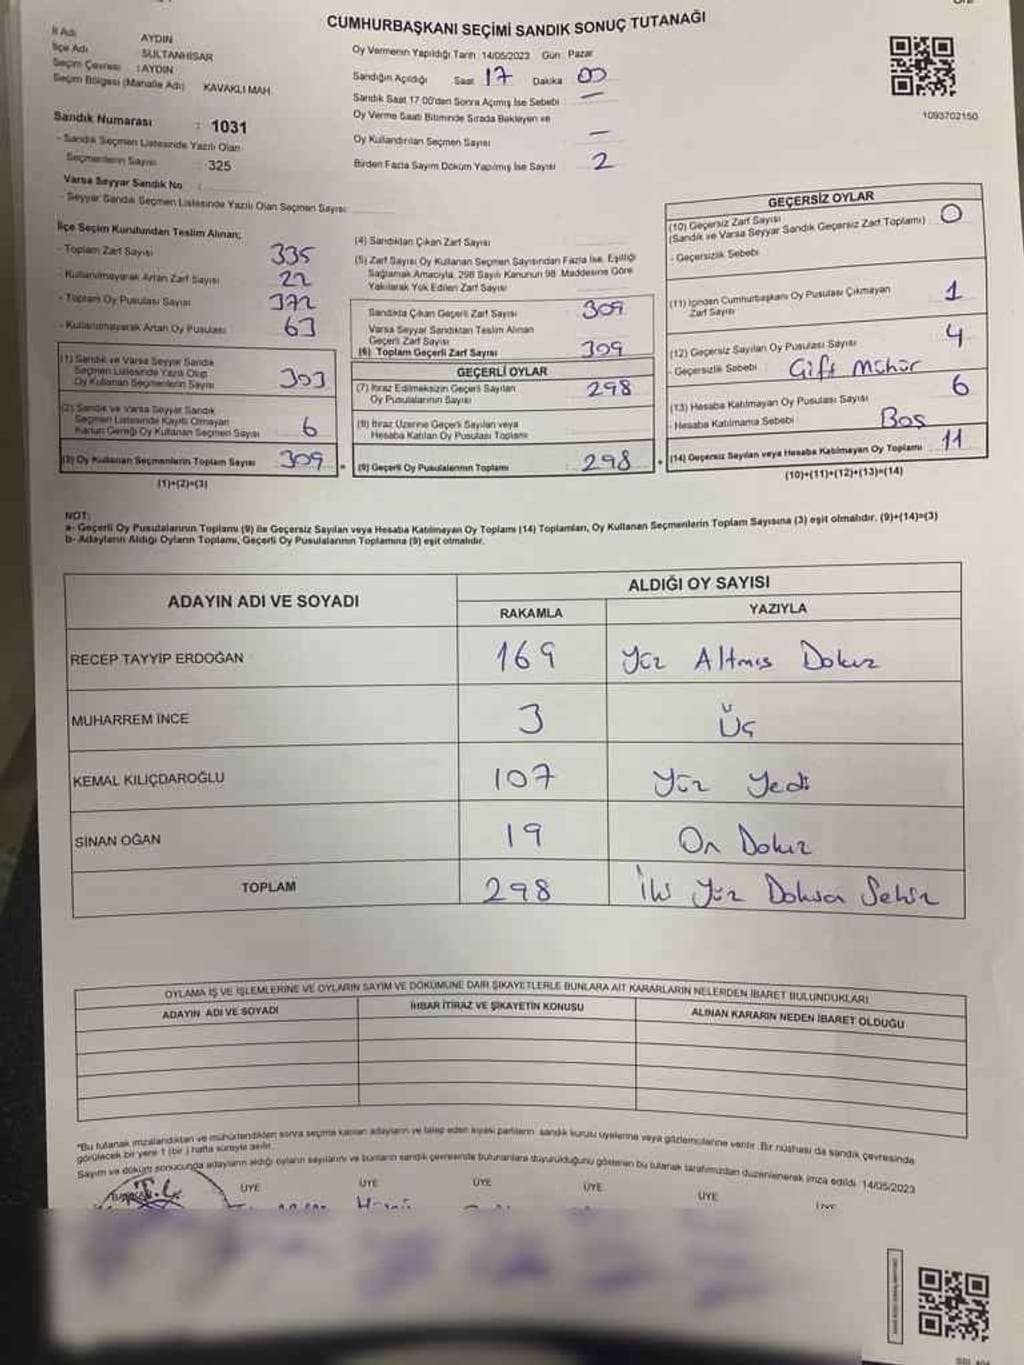 CUMHURBAŞKANI SEÇİMİ SANDIK SONUÇ TUTANAĞI
İl Adı AYDIN
İlçe Adı SULTANHİSAR
Seçim Çevresi : AYDIN
Seçim Bölgesi (Mahalle Adı) KAVAKLI MAH.
Sandık Numarası : 1031
- Sandık Seçmen Listesinde Yazılı Olan
Seçmenlerin Sayısı : 325
Varsa Seyyar Sandık No :
- Seyyar Sandık Seçmen Listesinde Yazılı Olan Seçmen Sayısı:
Oy Vermenin Yapıldığı Tarih: 14/05/2023 Gün: Pazar
Sandığın Açıldığı Saat 17 Dakika 00
Sandık Saat 17.00'den Sonra Açmış İse Sebebi —
Oy Verme Saati Bitiminde Sırada Bekleyen ve
Oy Kullandırılan Seçmen Sayısı —
Birden Fazla Sayım Döküm Yapılmış İse Sayısı 2
1093702150
İlçe Seçim Kurulundan Teslim Alınan;
- Toplam Zarf Sayısı 335
- Kullanılmayarak Artan Zarf Sayısı 22
- Toplam Oy Pusulası Sayısı 372
- Kullanılmayarak Artan Oy Pusulası 63
(1) Sandık ve Varsa Seyyar Sandık
Seçmen Listesinde Yazılı Olup
Oy Kullanan Seçmenlerin Sayısı 303
(2) Sandık ve Varsa Seyyar Sandık
Seçmen Listesinde Kayıtlı Olmayan
Kanun Gereği Oy Kullanan Seçmen Sayısı 6
(3) Oy Kullanan Seçmenlerin Toplam Sayısı 309
(1)+(2)=(3)
(4) Sandıktan Çıkan Zarf Sayısı
(5) Zarf Sayısı Oy Kullanan Seçmen Sayısından Fazla İse, Eşitliği
Sağlamak Amacıyla, 298 Sayılı Kanunun 98. Maddesine Göre
Yakılarak Yok Edilen Zarf Sayısı
Sandıkta Çıkan Geçerli Zarf Sayısı 309
Varsa Seyyar Sandıktan Teslim Alınan
Geçerli Zarf Sayısı
(6) Toplam Geçerli Zarf Sayısı 309
GEÇERLİ OYLAR
(7) İtiraz Edilmeksizin Geçerli Sayılan
Oy Pusulalarının Sayısı 298
(8) İtiraz Üzerine Geçerli Sayılan veya
Hesaba Katılan Oy Pusulası Toplamı
= (9) Geçerli Oy Pusulalarının Toplamı 298
GEÇERSİZ OYLAR
(10) Geçersiz Zarf Sayısı
(Sandık ve Varsa Seyyar Sandık Geçersiz Zarf Toplamı) 0
- Geçersizlik Sebebi
(11) İçinden Cumhurbaşkanı Oy Pusulası Çıkmayan
Zarf Sayısı 1
(12) Geçersiz Sayılan Oy Pusulası Sayısı 4
- Geçersizlik Sebebi Çift Mühür
(13) Hesaba Katılmayan Oy Pusulası Sayısı 6
- Hesaba Katılmama Sebebi Boş
+ (14) Geçersiz Sayılan veya Hesaba Katılmayan Oy Toplamı 11
(10)+(11)+(12)+(13)=(14)
NOT:
a- Geçerli Oy Pusulalarının Toplamı (9) ile Geçersiz Sayılan veya Hesaba Katılmayan Oy Toplamı (14) Toplamları, Oy Kullanan Seçmenlerin Toplam Sayısına (3) eşit olmalıdır. (9)+(14)=(3)
b- Adayların Aldığı Oyların Toplamı, Geçerli Oy Pusulalarının Toplamına (9) eşit olmalıdır.
ADAYIN ADI VE SOYADI ALDIĞI OY SAYISI
RAKAMLA YAZIYLA
RECEP TAYYİP ERDOĞAN 169 Yüz Altmış Dokuz
MUHARREM İNCE 3 Üç
KEMAL KILIÇDAROĞLU 107 Yüz Yedi
SİNAN OĞAN 19 On Dokuz
TOPLAM 298 İki Yüz Doksan Sekiz
OYLAMA İŞ VE İŞLEMLERİNE VE OYLARIN SAYIM VE DÖKÜMÜNE DAİR ŞİKAYETLERLE BUNLARA AİT KARARLARIN NELERDEN İBARET BULUNDUKLARI
ADAYIN ADI VE SOYADI İHBAR İTİRAZ VE ŞİKAYETİN KONUSU ALINAN KARARIN NEDEN İBARET OLDUĞU
"Bu tutanak imzalandıktan ve mühürlendikten sonra seçime katılan adayların ve talep eden siyasi partilerin sandık kurulu üyelerine veya gözlemcilerine verilir. Bir nüshası da sandık çevresinde
görülecek bir yere 1 (bir) hafta süreyle asılır.
Sayım ve döküm sonucunda adayların aldığı oyların sayılarını ve bunların sandık çevresinde bulunanlara duyurulduğunu gösteren bu tutanak tarafımızdan düzenlenerek imza edildi. 14/05/2023
T.C.
ÜYE ÜYE ÜYE ÜYE ÜYE ÜYE